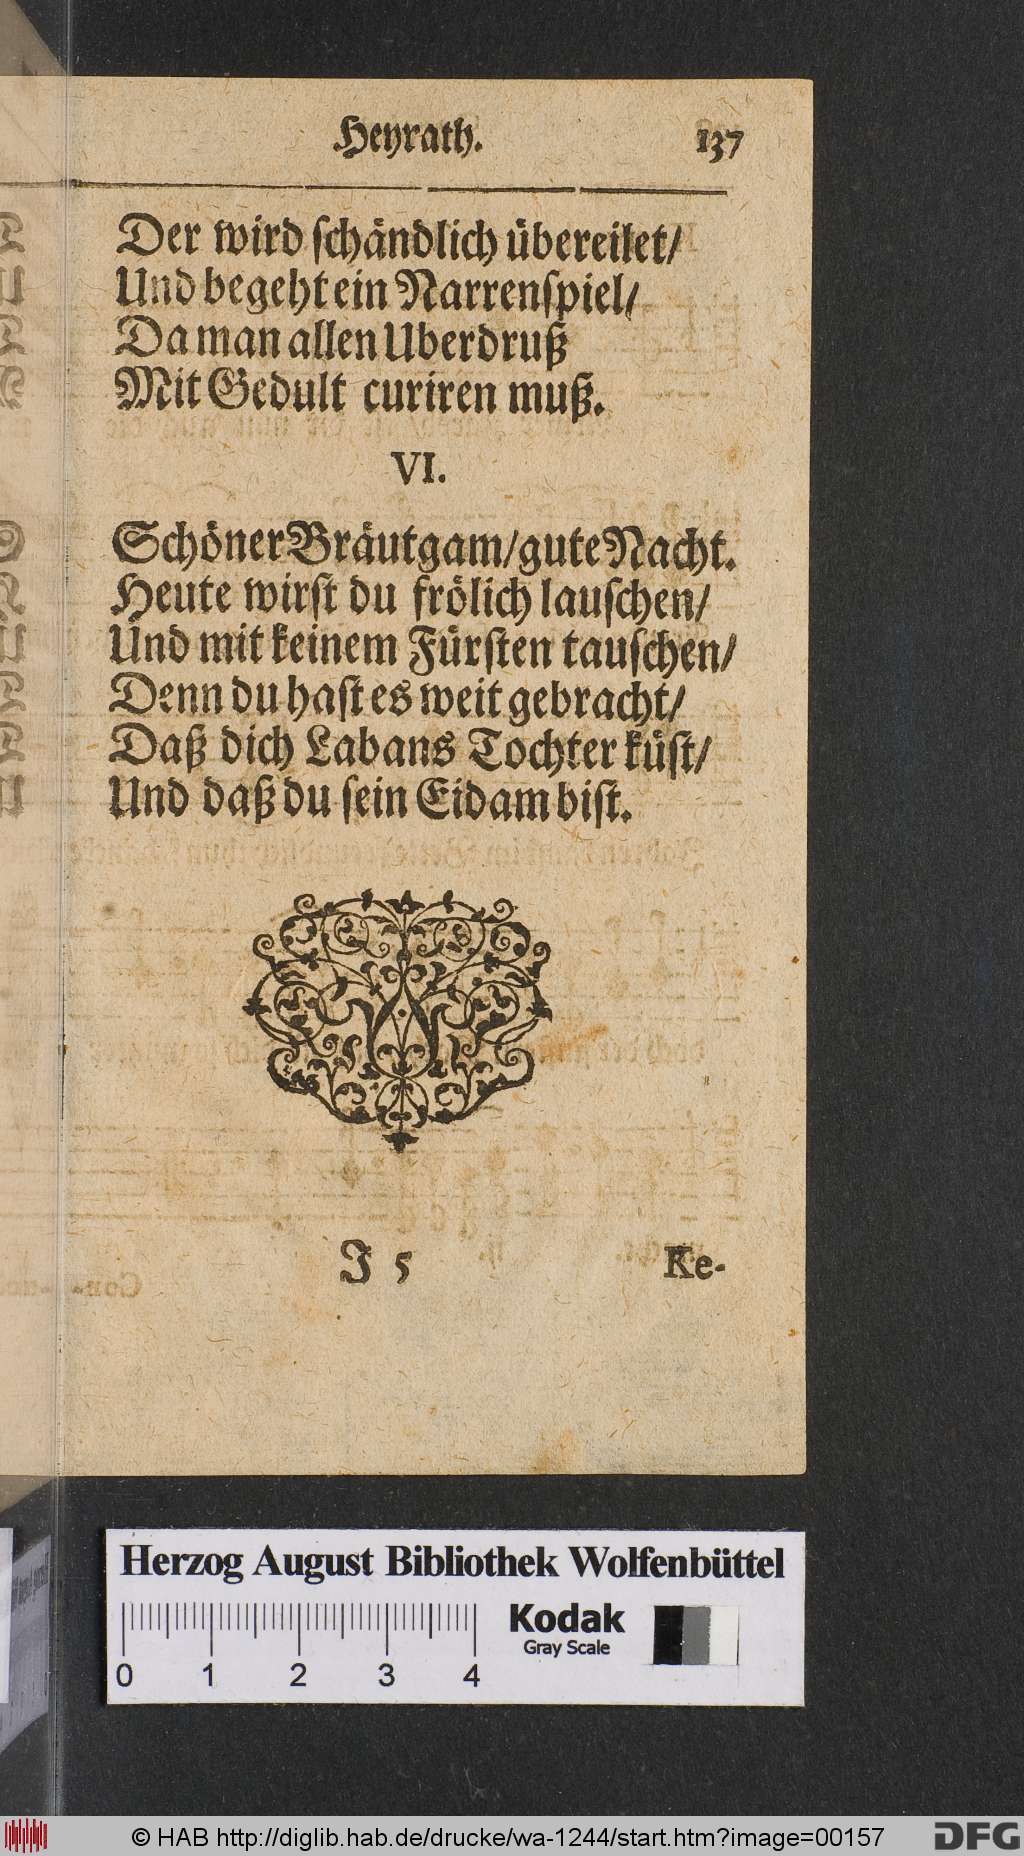 Heyrath. 137
Der wird ſchändlich übereilet/
Und begeht ein Narrenſpiel/
Da man allen Uberdruß
Mit Gedult curiren muß.
VI.
Schöner Bräutgam/gute Nacht.
Heute wirſt du frölich lauſchen/
Und mit keinem Fürſten tauſchen/
Denn du haſt es weit gebracht/
Daß dich Labans Tochter küſt/
Und daß du ſein Eidam biſt.
J 5 Ke-
Herzog August Bibliothek Wolfenbüttel
Kodak
Gray Scale
0 1 2 3 4
© HAB http://diglib.hab.de/drucke/wa-1244/start.htm?image=00157 DFG